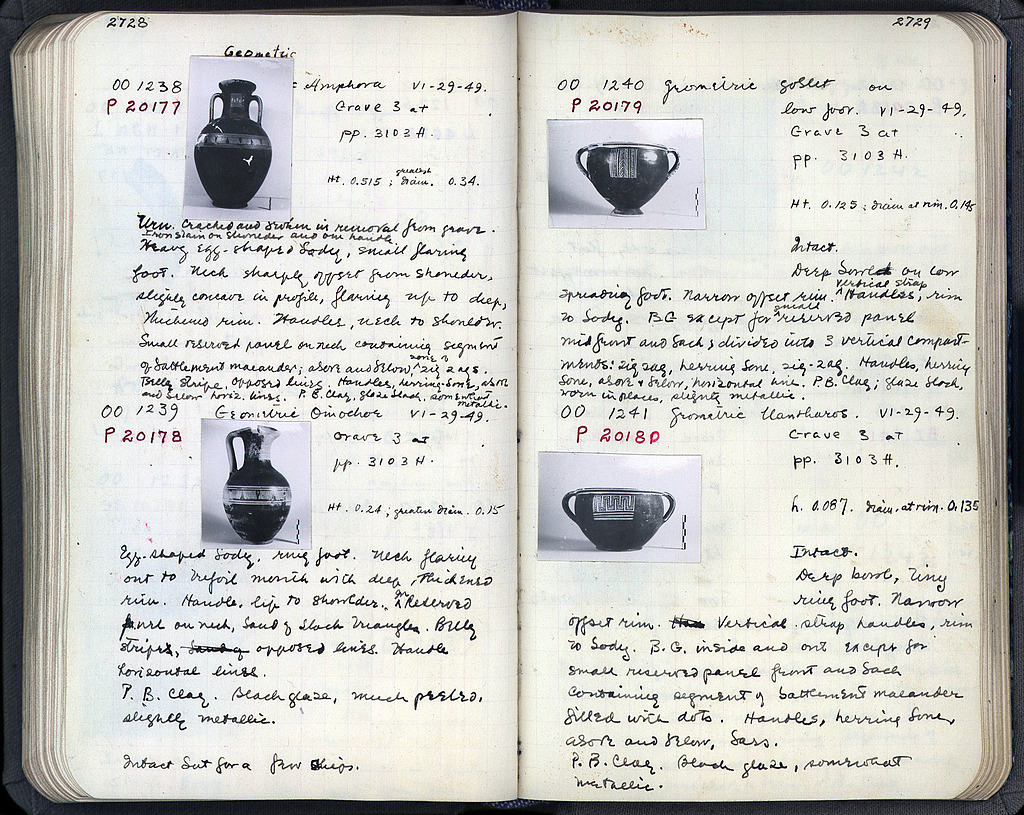 2728
Geometric
OO 1238 Amphora VI-29-49.
P 20177 Grave 3 at
pp. 3103 H.
greatest
Ht. 0.515; diam. 0.34.
Urn. Cracked and broken in removal from grave.
Iron stain on shoulder and one handle
Heavy egg-shaped body, small flaring
foot. Neck sharply offset from shoulder,
slightly concave in profile, flaring up to deep,
thickened rim. Handles, neck to shoulder.
Small reserved panel on neck containing segment
of battlement maeander; above and below zone of zig zags.
Belly stripe, opposed lines. Handles, herring-bone, above
and below horiz. lines. P.B. Clay, glaze black, somewhat
metallic.
OO 1239 Geometric Oinochoe VI-29-49.
P 20178 Grave 3 at
pp. 3103 H.
Ht. 0.24; greatest diam. 0.15
Egg-shaped body, ring foot. Neck flaring
out to trefoil mouth with deep, thickened
rim. Handle, lip to shoulder. In reserved
panel on neck, band of black triangles. Belly
stripes, band of opposed lines. Handle
horizontal lines.
P.B. Clay. Black glaze, much peeled,
slightly metallic.
Intact but for a few chips.
2729
OO 1240 Geometric goblet on
P 20179 low foot. VI-29-49.
Grave 3 at
pp. 3103 H.
Ht. 0.125; diam at rim. 0.145
Intact.
Deep bowl on low
vertical strap
spreading foot. Narrow offset rim. Handles, rim
small
to body. BG except for reserved panel
mid front and back; divided into 3 vertical compart-
ments: zig zag, herring bone, zig-zag. Handles, herring
bone, above & below, horizontal line. P.B. Clay; glaze black,
worn in places, slightly metallic.
OO 1241 Geometric Kantharos. VI-29-49.
P 20180 Grave 3 at
pp. 3103 H.
h. 0.087. diam. at rim. 0.135
Intact.
Deep bowl, tiny
ring foot. Narrow
offset rim. Vertical strap handles, rim
to body. B.G. inside and out except for
small reserved panel front and back
containing segment of battlement maeander
filled with dots. Handles, herring bone,
above and below, bars.
P.B. Clay. Black glaze, somewhat
metallic.